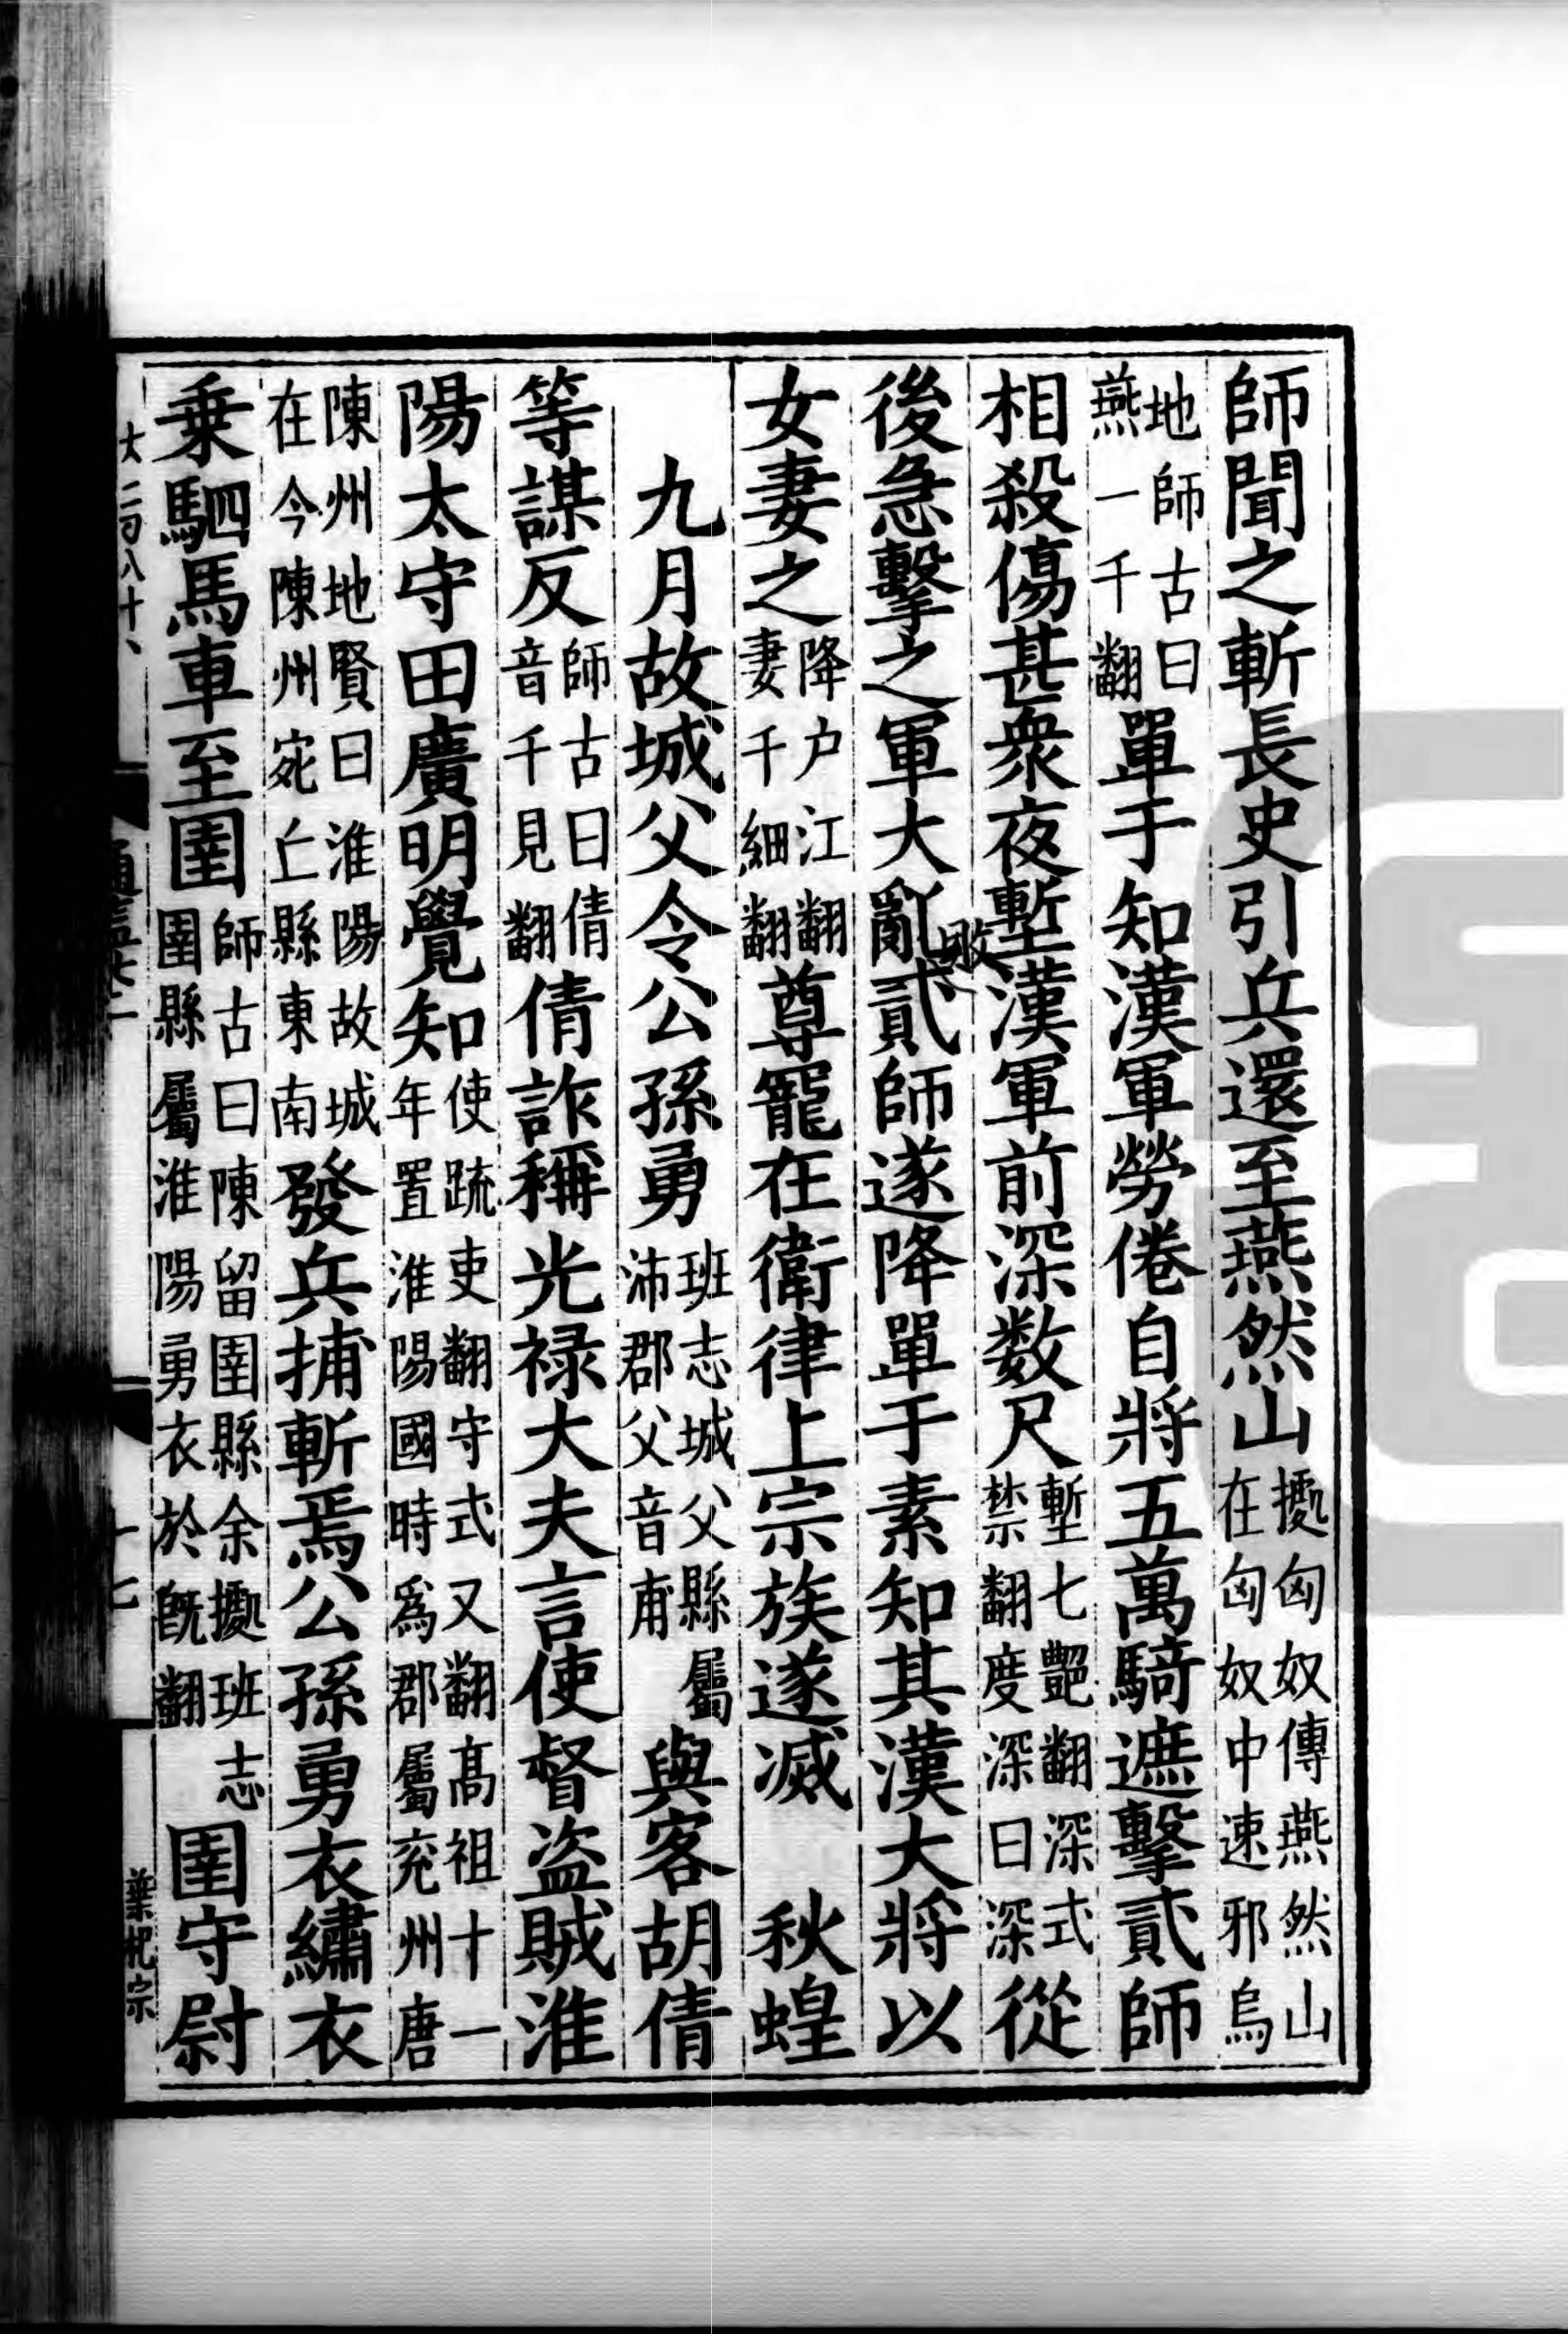 師聞之斬長史引兵還至燕然山據匈奴傳燕然山在匈奴中速邪烏
地師古曰燕一千翻單于知漢軍勞倦自將五萬騎遮擊貳師
相殺傷甚衆夜塹漢軍前深数尺塹七豔翻深式禁翻度深曰深從
後急擊之軍大亂敗貳師遂降單于素知其漢大將以
女妻之降户江翻妻千細翻尊寵在衛律上宗族遂滅 秋蝗
九月故城父令公孫勇班志城父縣屬沛郡父音甫與客胡倩
等謀反師古曰倩音千見翻倩詐稱光禄大夫言使督盗賊淮
陽太守田廣明覺知使疏吏翻守式又翻髙祖十一年置淮陽國時爲郡屬兖州唐
陳州地賢曰淮陽故城在今陳州宛丘縣東南發兵捕斬焉公孫勇衣繡衣
乗駟馬車至圉師古曰陳留圉縣余據班志圉縣屬淮陽勇衣於旣翻圉守尉
葉杞宗